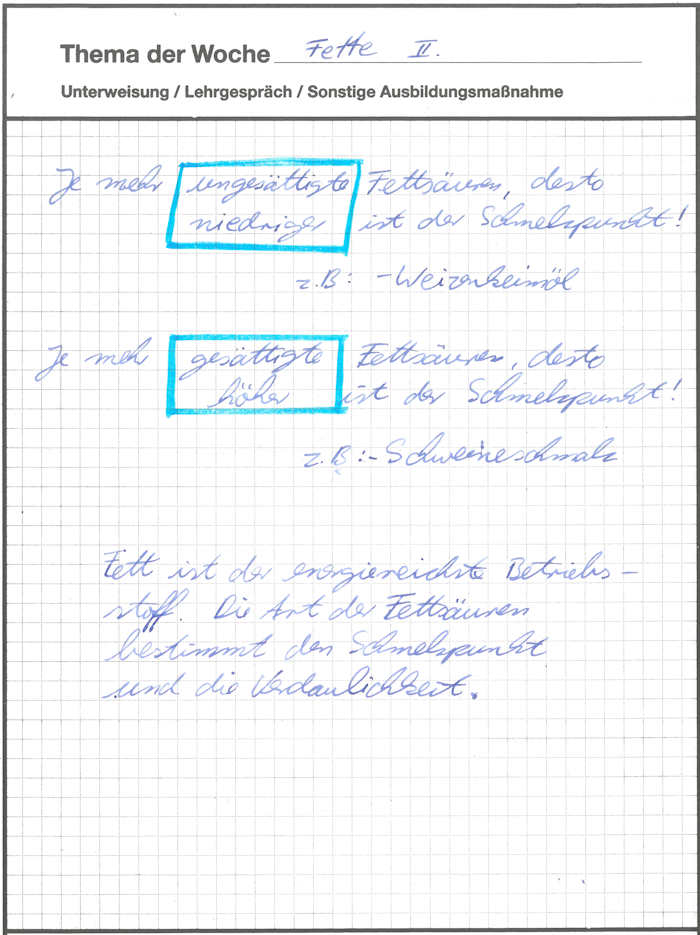 Thema der Woche Fette II.
Unterweisung / Lehrgespräch / Sonstige Ausbildungsmaßnahme
Je mehr ungesättigte Fettsäuren, desto
niedriger ist der Schmelzpunkt!
z.B: -Weizenkeimöl
Je mehr gesättigte Fettsäuren, desto
höher ist der Schmelzpunkt!
z.B:- Schweineschmalz
Fett ist der energiereichste Betriebs-
stoff. Die Art der Fettsäuren
bestimmt den Schmelzpunkt
und die Verdaulichkeit.